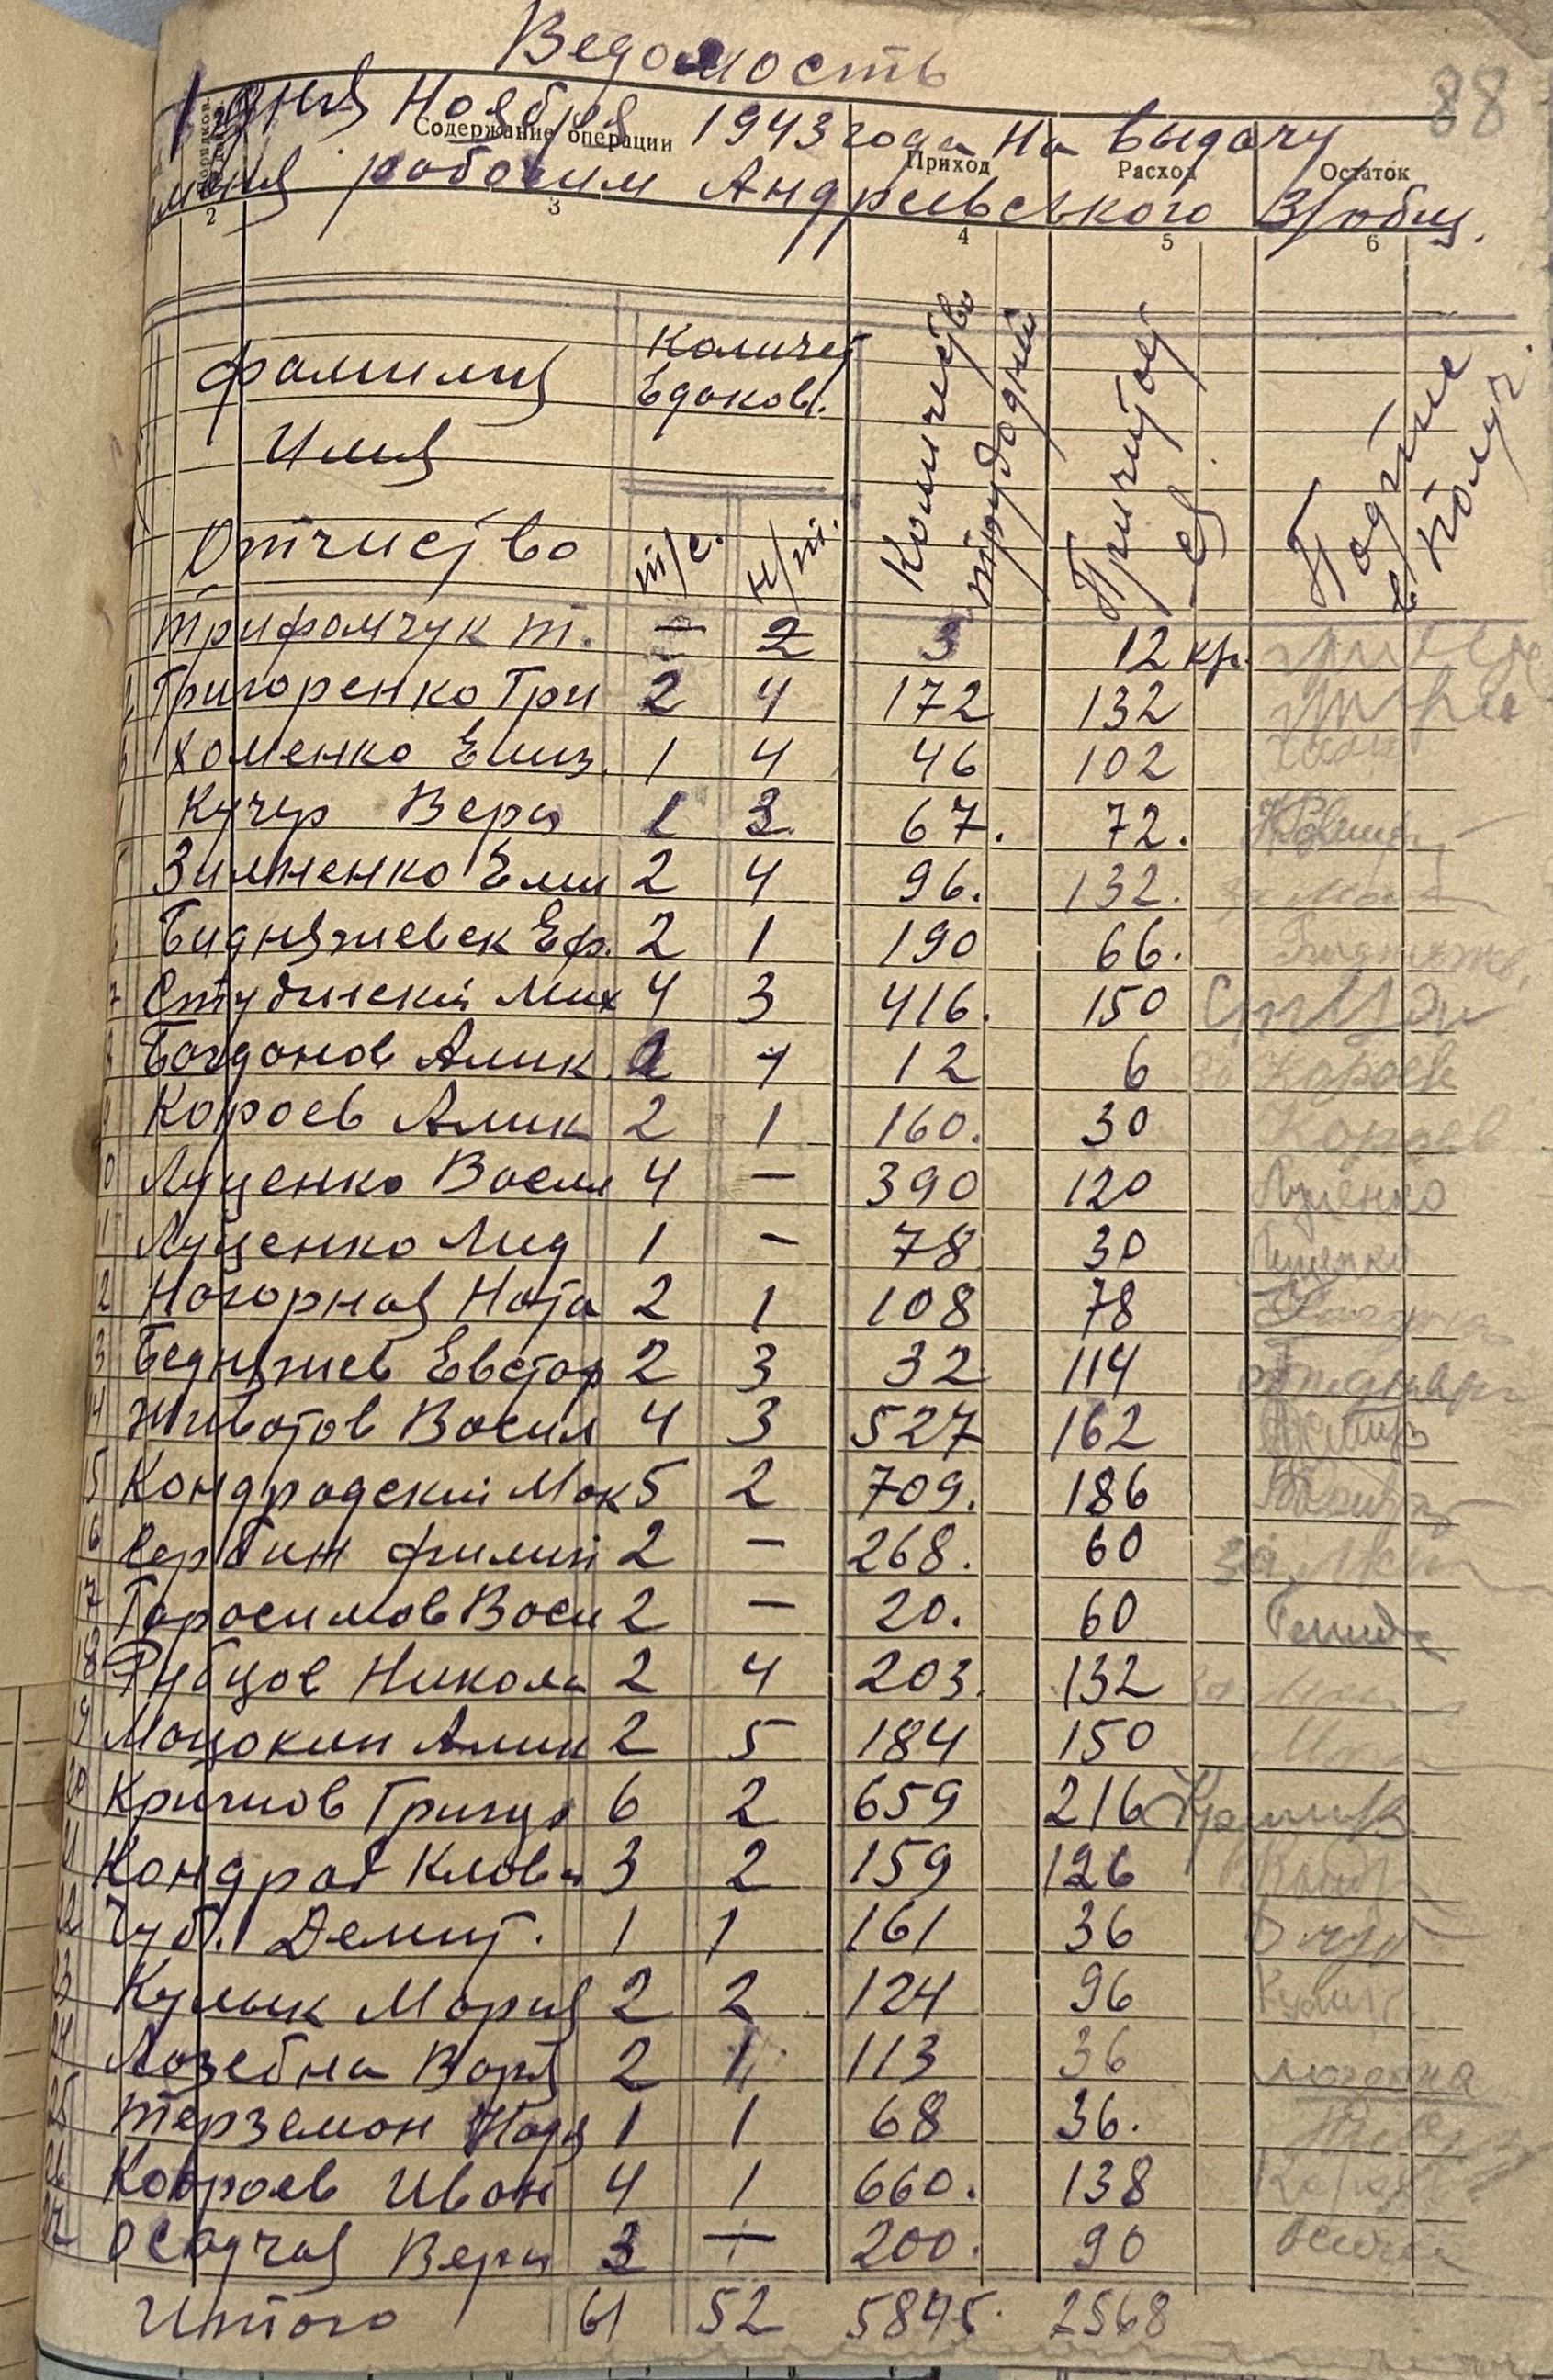 88
Ведомость
1 дня Ноября 1943 года На выдачу
рабочим Андреевського З/общ.
Содержание операции Приход Расход Остаток
2 3 4 5 6
Фамилия Имия Отчиство
Количест Едоков.
т/с. н/т.
Количество трудодней
Причитает ся
Подпис в получ.
Трифомчук т. — 2 3 12 кр.
Григоренко Гри 2 4 172 132
Хоменко Елиз. 1 4 46 102
Кучур Вера 1 3. 67. 72.
Зимненко Ели 2 4 96. 132.
Бидняжевск Еф. 2 1 190 66.
7 Студинский Мих 4 3 416. 150
8 Богданов Алик 1 12 6 за Короев
9 Короев Алик 2 1 160. 30 Короев
10 Луценко Васил 4 — 390 120 Луценко
11 Луценко Лид 1 — 78 30 Луценко
12 Ногорная Ната 2 1 108 78
13 Бедняжев Евстаф 2 3 32 114
14 Животов Васил 4 3 527 162
15 Кондрадский Мак 5 2 709. 186
16 Вербин Филип 2 — 268. 60 за
17 Гаросимов Васи 2 — 20. 60
18 Рубцов Никола 2 4 203. 132 за
19 Моцокин Алик 2 5 184 150
20 Кричнов Григор 6 2 659 216
21 Кондрат Клова 3 2 159 126
22 Чуб. Демит. 1 1 161 36
23 Кулык Мария 2 2 124 96 Кулик
24 Лозебна Варя 2 1 113 36 Лозебна
25 Терземан Надя 1 1 68 36.
26 Короев Иван 4 1 660. 138
27 Осадчая Вера 3 — 200. 90
Итого 61 52 5845. 2568